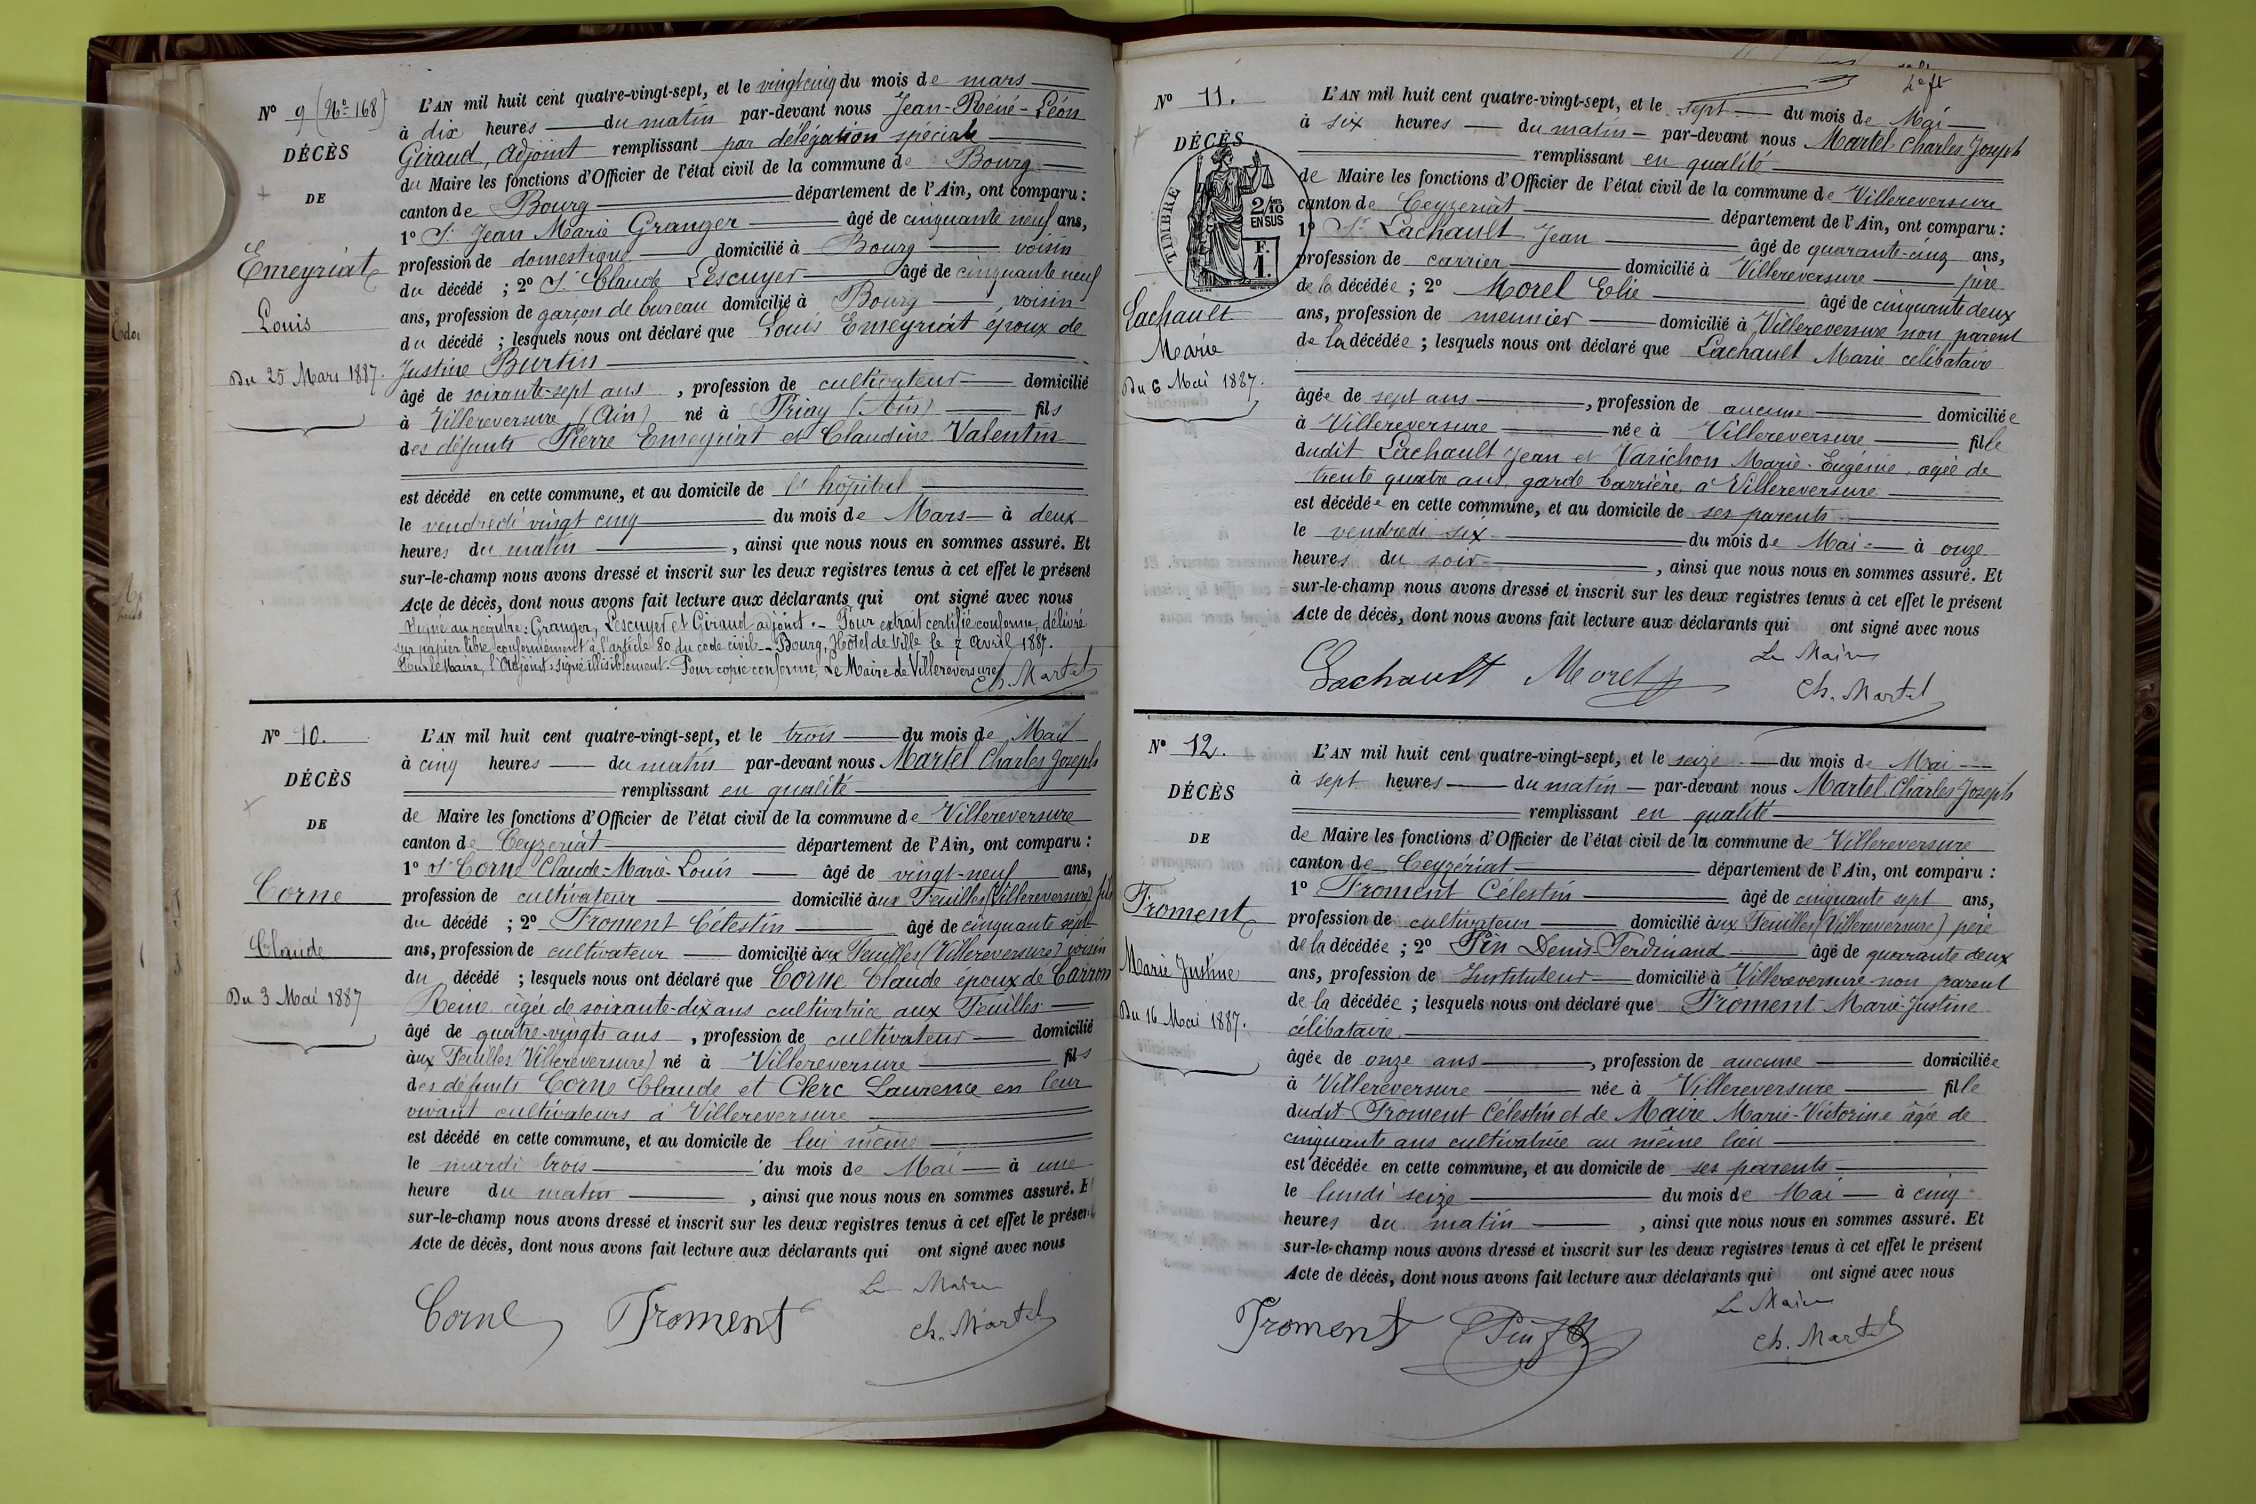 N° 9 (N° 168)
DÉCÈS
DE
Emeyriat
Louis
Du 25 Mars 1887.
L'AN mil huit cent quatre-vingt-sept, et le vingt cinq du mois de mars
à dix heures du matin par-devant nous Jean-Réné-Léon
Giraud, Adjoint remplissant par délégation spéciale
du Maire les fonctions d'Officier de l'état civil de la commune de Bourg
canton de Bourg département de l'Ain, ont comparu :
1° Sr Jean Marie Granger âgé de cinquante neuf ans,
profession de domestique domicilié à Bourg voisin
du décédé ; 2° Sr Claude Lescuyer âgé de cinquante neuf
ans, profession de garçon de bureau domicilié à Bourg, voisin
du décédé ; lesquels nous ont déclaré que Louis Emeyriat époux de
Justine Burtin
âgé de soixante-sept ans, profession de cultivateur domicilié
à Villereversure (Ain) né à Priay (Ain) fils
des défunts Pierre Emeyriat et Claudine Valentin
est décédé en cette commune, et au domicile de l'hôpital
le vendredi vingt cinq du mois de Mars à deux
heures du matin, ainsi que nous nous en sommes assuré. Et
sur-le-champ nous avons dressé et inscrit sur les deux registres tenus à cet effet le présent
Acte de décès, dont nous avons fait lecture aux déclarants qui ont signé avec nous
Signé au registre : Granger, Lescuyer et Giraud adjoint. - Pour extrait certifié conforme, délivré
sur papier libre conformément à l'article 80 du code civil - Bourg, Hôtel de Ville le 7 Avril 1887.
Pour le Maire, l'Adjoint, signé illisiblement. Pour copie conforme, Le Maire de Villereversure
Ch. Martel
N° 10.
DÉCÈS
DE
Corne
Claude
Du 3 Mai 1887
L'AN mil huit cent quatre-vingt-sept, et le trois du mois de Mai
à cinq heures du matin par-devant nous Martel Charles Joseph
remplissant en qualité
de Maire les fonctions d'Officier de l'état civil de la commune de Villereversure
canton de Ceyzeriat département de l'Ain, ont comparu :
1° Sr Corne Claude-Marie-Louis âgé de vingt-neuf ans,
profession de cultivateur domicilié aux Feuilles (Villereversure) fils
du décédé ; 2° Froment Célestin âgé de cinquante sept
ans, profession de cultivateur domicilié aux Feuilles (Villereversure) voisin
du décédé ; lesquels nous ont déclaré que Corne Claude époux de Carron
Reine âgée de soixante-dix ans cultivatrice aux Feuilles
âgé de quatre-vingts ans, profession de cultivateur domicilié
aux Feuilles (Villereversure) né à Villereversure fils
des défunts Corne Claude et Clerc Laurence en leur
vivant cultivateurs à Villereversure
est décédé en cette commune, et au domicile de lui même
le mardi trois du mois de Mai à une
heure du matin, ainsi que nous nous en sommes assuré. E
sur-le-champ nous avons dressé et inscrit sur les deux registres tenus à cet effet le présent
Acte de décès, dont nous avons fait lecture aux déclarants qui ont signé avec nous
Le Maire
Corne Froment Ch. Martel
N° 11.
DÉCÈS
TIMBRE
2/10 EN SUS
F. 1.
Lachault
Marie
Du 6 Mai 1887.
L'AN mil huit cent quatre-vingt-sept, et le sept du mois de Mai
à six heures du matin par-devant nous Martel Charles Joseph
remplissant en qualité
de Maire les fonctions d'Officier de l'état civil de la commune de Villereversure
canton de Ceyzeriat département de l'Ain, ont comparu :
1° Sr Lachault Jean âgé de quarante-cinq ans,
profession de carrier domicilié à Villereversure père
de la décédée ; 2° Morel Elie âgé de cinquante deux
ans, profession de meunier domicilié à Villereversure non parent
de la décédée ; lesquels nous ont déclaré que Lachault Marie célibataire
âgée de sept ans, profession de aucune domiciliée
à Villereversure née à Villereversure fille
dudit Lachault Jean et Varichon Marie-Eugénie, agée de
trente quatre ans, garde barrière, à Villereversure
est décédée en cette commune, et au domicile de ses parents
le vendredi six du mois de Mai à onze
heures du soir, ainsi que nous nous en sommes assuré. Et
sur-le-champ nous avons dressé et inscrit sur les deux registres tenus à cet effet le présent
Acte de décès, dont nous avons fait lecture aux déclarants qui ont signé avec nous
Le Maire
Lachault Morel Ch. Martel
N° 12.
DÉCÈS
DE
Froment
Marie Justine
Du 16 Mai 1887.
L'AN mil huit cent quatre-vingt-sept, et le seize du mois de Mai
à sept heures du matin par-devant nous Martel Charles Joseph
remplissant en qualité
de Maire les fonctions d'Officier de l'état civil de la commune de Villereversure
canton de Ceyzériat département de l'Ain, ont comparu :
1° Froment Célestin âgé de cinquante sept ans,
profession de cultivateur domicilié aux Feuilles (Villereversure) père
de la décédée ; 2° Pin Denis-Ferdinand âgé de quarante deux
ans, profession de Instituteur domicilié à Villereversure non parent
de la décédée ; lesquels nous ont déclaré que Froment Marie-Justine
célibataire
âgée de onze ans, profession de aucune domiciliée
à Villereversure née à Villereversure fille
dudit Froment Célestin et de Maire Marie-Victorine âgée de
cinquante ans cultivatrice au même lieu
est décédée en cette commune, et au domicile de ses parents
le lundi seize du mois de Mai à cinq
heures du matin, ainsi que nous nous en sommes assuré. Et
sur-le-champ nous avons dressé et inscrit sur les deux registres tenus à cet effet le présent
Acte de décès, dont nous avons fait lecture aux déclarants qui ont signé avec nous
Le Maire
Froment Pin Ch. Martel